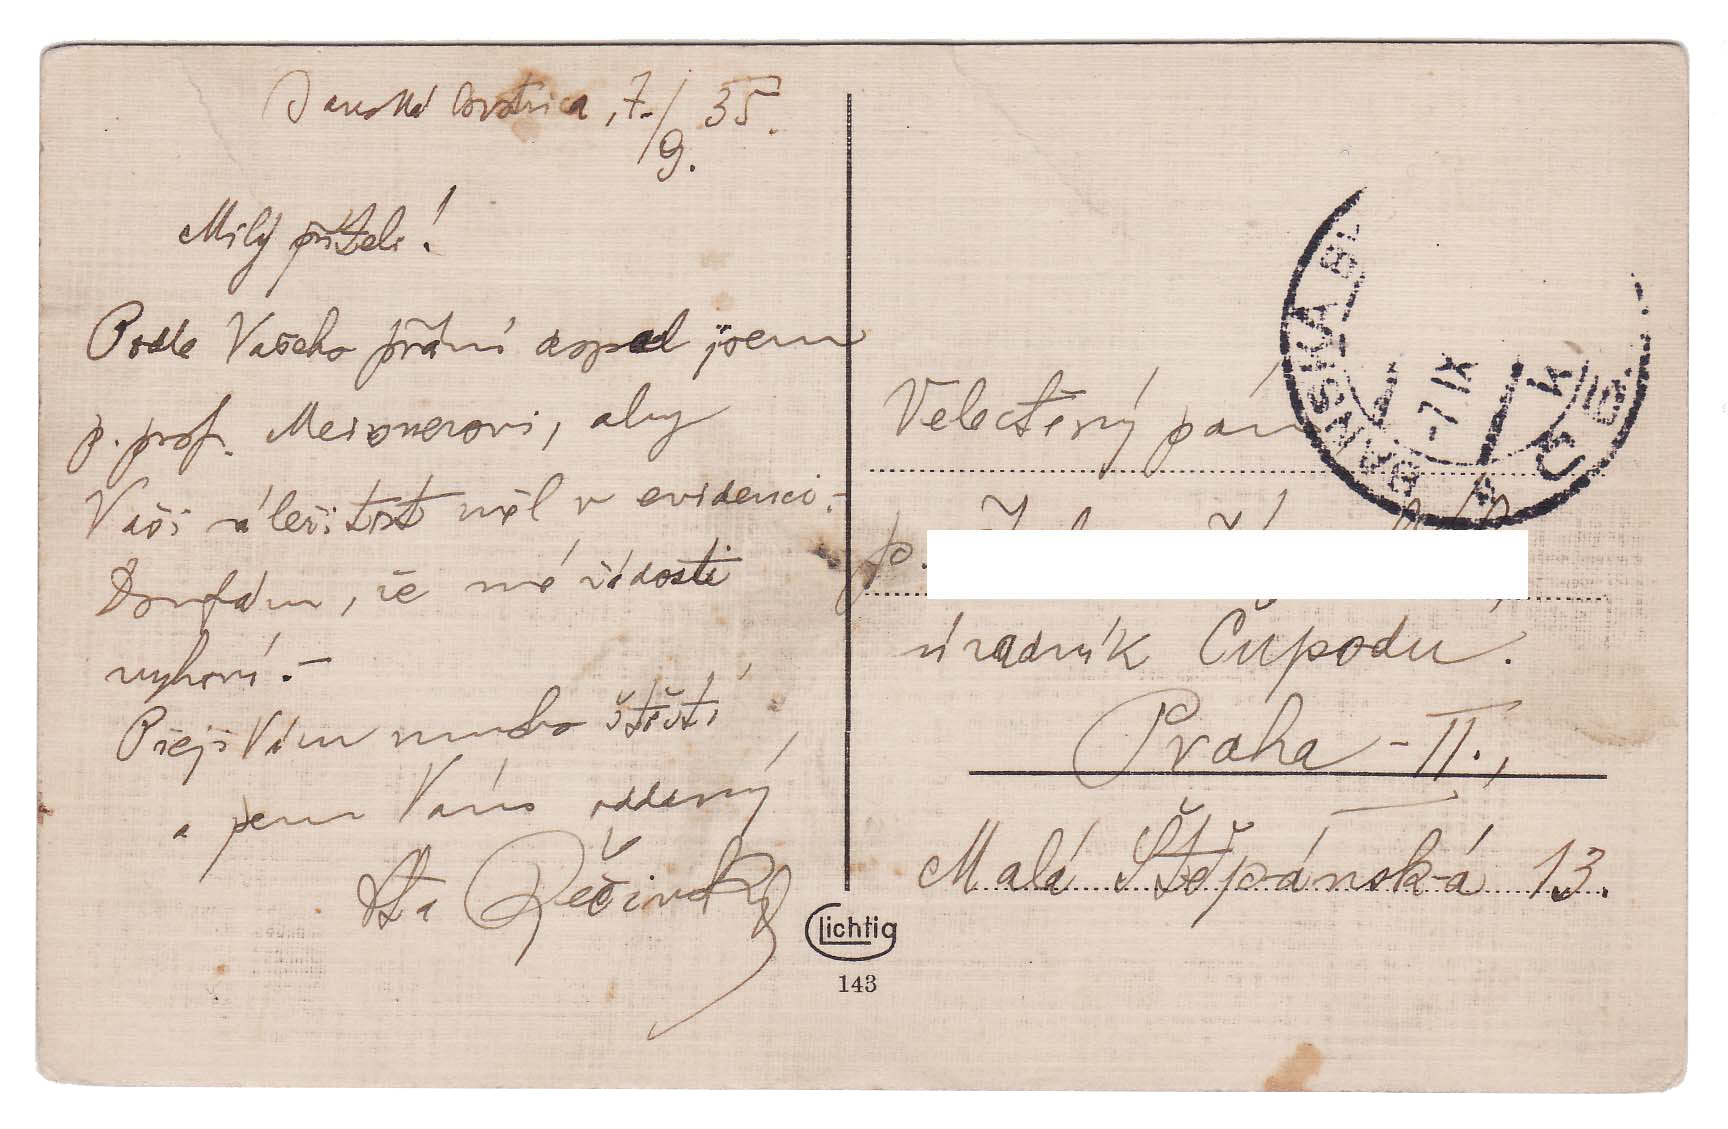 Banská Bystrica, 7./9. 35.
Milý příteli!
Podle Vašeho přání dopsal jsem
p. prof. Meisnerovi, aby
Vaši záležitost měl v evidenci.-
Doufám, že mé žádosti
vyhoví.-
Přeji Vám mnoho štěstí
a jsem Vám oddaný
Velectěný pán
p.
úradník Čúpodu.
Praha - II.,
Malá Štěpánská 13.
BANSKÁ B
-7 IX
Lichtig
143